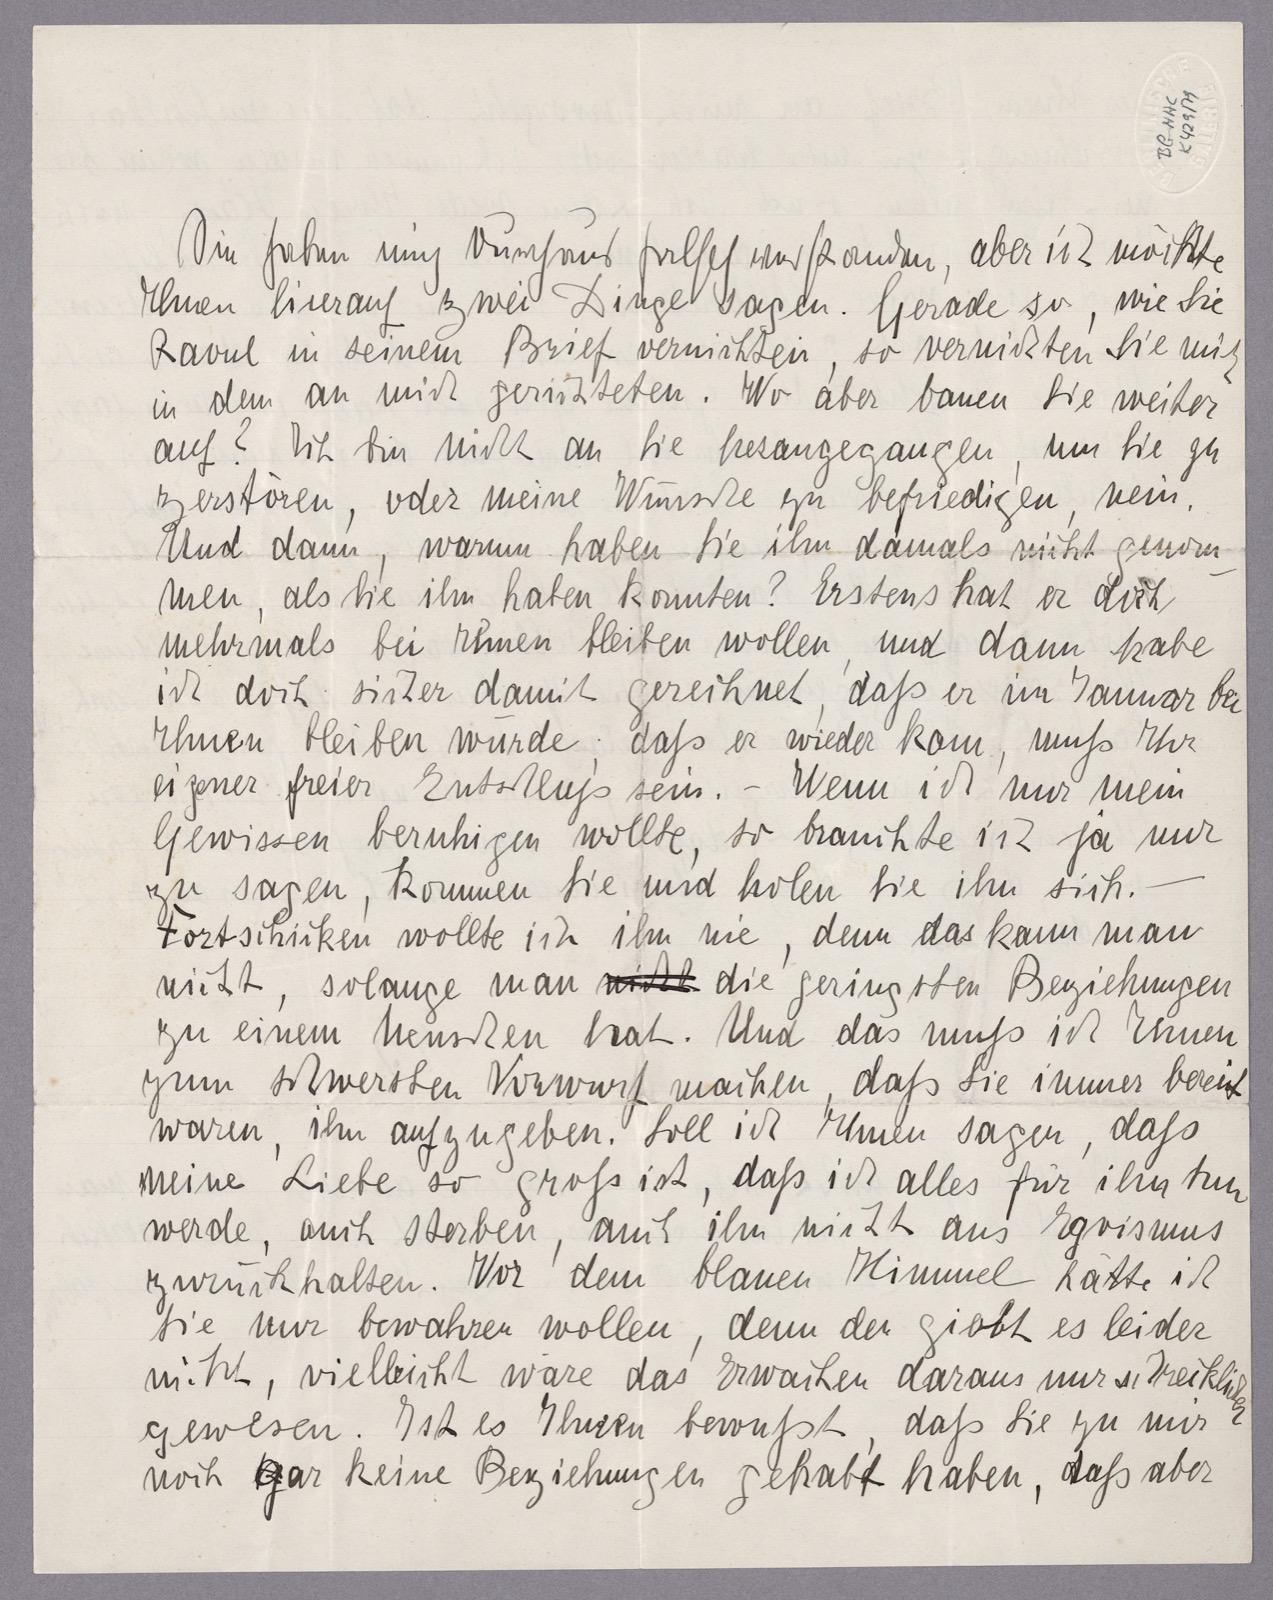 BG-HHC
K 429/79
Sie haben mich durchaus falsch verstanden, aber ich möchte
Ihnen hierauf zwei Dinge sagen. Gerade so, wie Sie
Raoul in seinem Brief vernichten, so vernichten Sie mich
in dem an mich gerichteten. Wo aber bauen Sie weiter
auf? Ich bin nicht an Sie herangegangen, um Sie zu
zerstören, oder meine Wünsche zu befriedigen, nein.
Und dann, warum haben Sie ihn damals nicht genom-
men, als Sie ihn haben konnten? Erstens hat er doch
mehrmals bei Ihnen bleiben wollen, und dann habe
ich doch sicher damit gerechnet, daß er im Januar bei
Ihnen bleiben würde; daß er wieder kam, muß Ihr
eigener freier Entschluß sein. – Wenn ich nur mein
Gewissen beruhigen wollte, so brauchte ich ja nur
zu sagen, kommen Sie und holen Sie ihn sich. —
Fortschicken wollte ich ihn nie, denn das kann man
nicht, solange man nicht die geringsten Beziehungen
zu einem Menschen hat. Und das muß ich Ihnen
zum schwersten Vorwurf machen, daß Sie immer bereit
waren, ihn aufzugeben. Soll ich Ihnen sagen, daß
meine Liebe so groß ist, daß ich alles für ihn tun
werde, auch sterben, auch ihn nicht aus Egoismus
zurückhalten. Vor dem blauen Himmel hätte ich
Sie nur bewahren wollen, denn den giebt es leider
nicht, vielleicht wäre das Erwachen daraus nur schrecklicher
gewesen. Ist es Ihnen bewußt, daß Sie zu mir
noch gar keine Beziehungen gehabt haben, daß aber